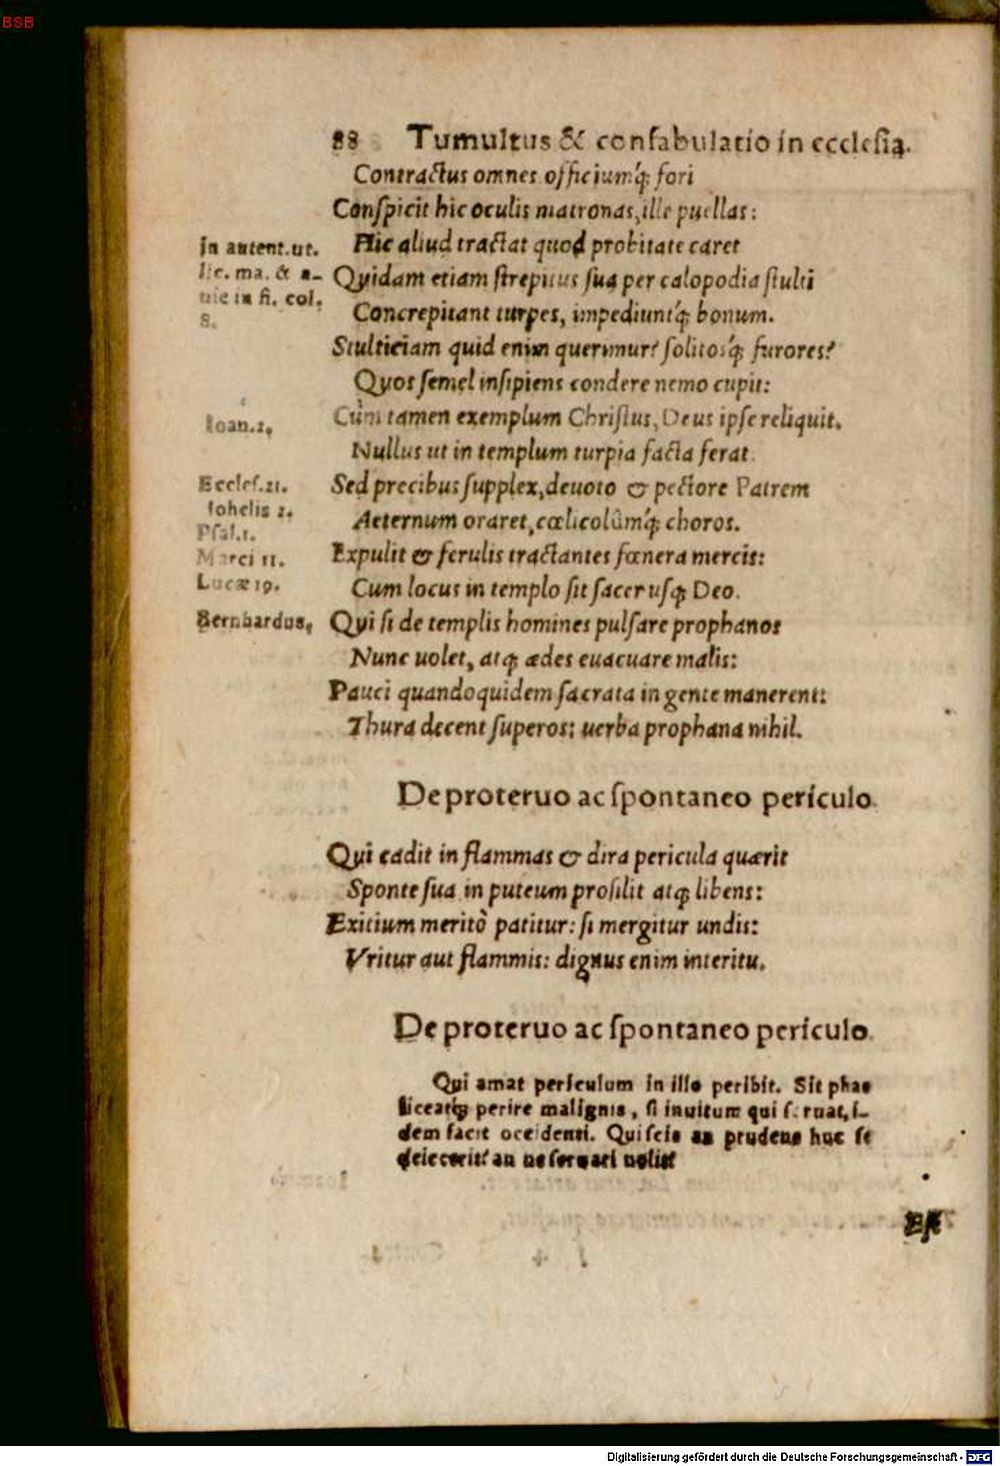 BSB
88 Tumultus & confabulatio in ecclesia.
Contractus omnes officiumq́ꝫ fori
Conſpicit hic oculis matronas, ille puellas:
In autent. ut.
Hic aliud tractat quod probitate caret
lic. ma. & a-
Quidam etiam ſtrepitus ſua per calopodia ſtulti
nic in fi. col.
Concrepitant turpes, impediuntq́ꝫ bonum.
8.
Stulticiam quid enim querimur? ſolitosq́ꝫ furores?
Quos ſemel inſipiens condere nemo cupit:
Ioan. 2.
Cùm tamen exemplum Chriſtus, Deus ipſe reliquit.
Nullus ut in templum turpia facta ferat.
Eccleſ. 21.
Sed precibus ſupplex, deuoto & pectore Patrem
Iohelis 2.
Aeternum oraret, cœlicolûmq́ꝫ choros.
Pſal. 1.
Marci 11.
Expulit & ferulis tractantes fœnera mercis:
Lucæ 19.
Cum locus in templo ſit ſacer uſqꝫ Deo.
Bernhardus.
Qui ſi de templis homines pulſare prophanos
Nunc uolet, atqꝫ ædes euacuare malis:
Pauci quandoquidem ſacrata in gente manerent:
Thura decent ſuperos: uerba prophana nihil.
De proteruo ac ſpontaneo periculo.
Qui cadit in flammas & dira pericula quærit
Sponte ſua in puteum proſilit atqꝫ libens:
Exitium meritò patitur: ſi mergitur undis:
Vritur aut flammis: dignus enim interitu.
De proteruo ac ſpontaneo periculo.
Qui amat periculum in illo peribit. Sit phas
liceatqꝫ perire malignis, ſi inuitum qui ſeruat, i-
dem facit occidenti. Qui ſcis an prudens huc ſe
deiecerit? an ne ſeruari nolit
Eſt
Digitalisierung gefördert durch die Deutsche Forschungsgemeinschaft - DFG